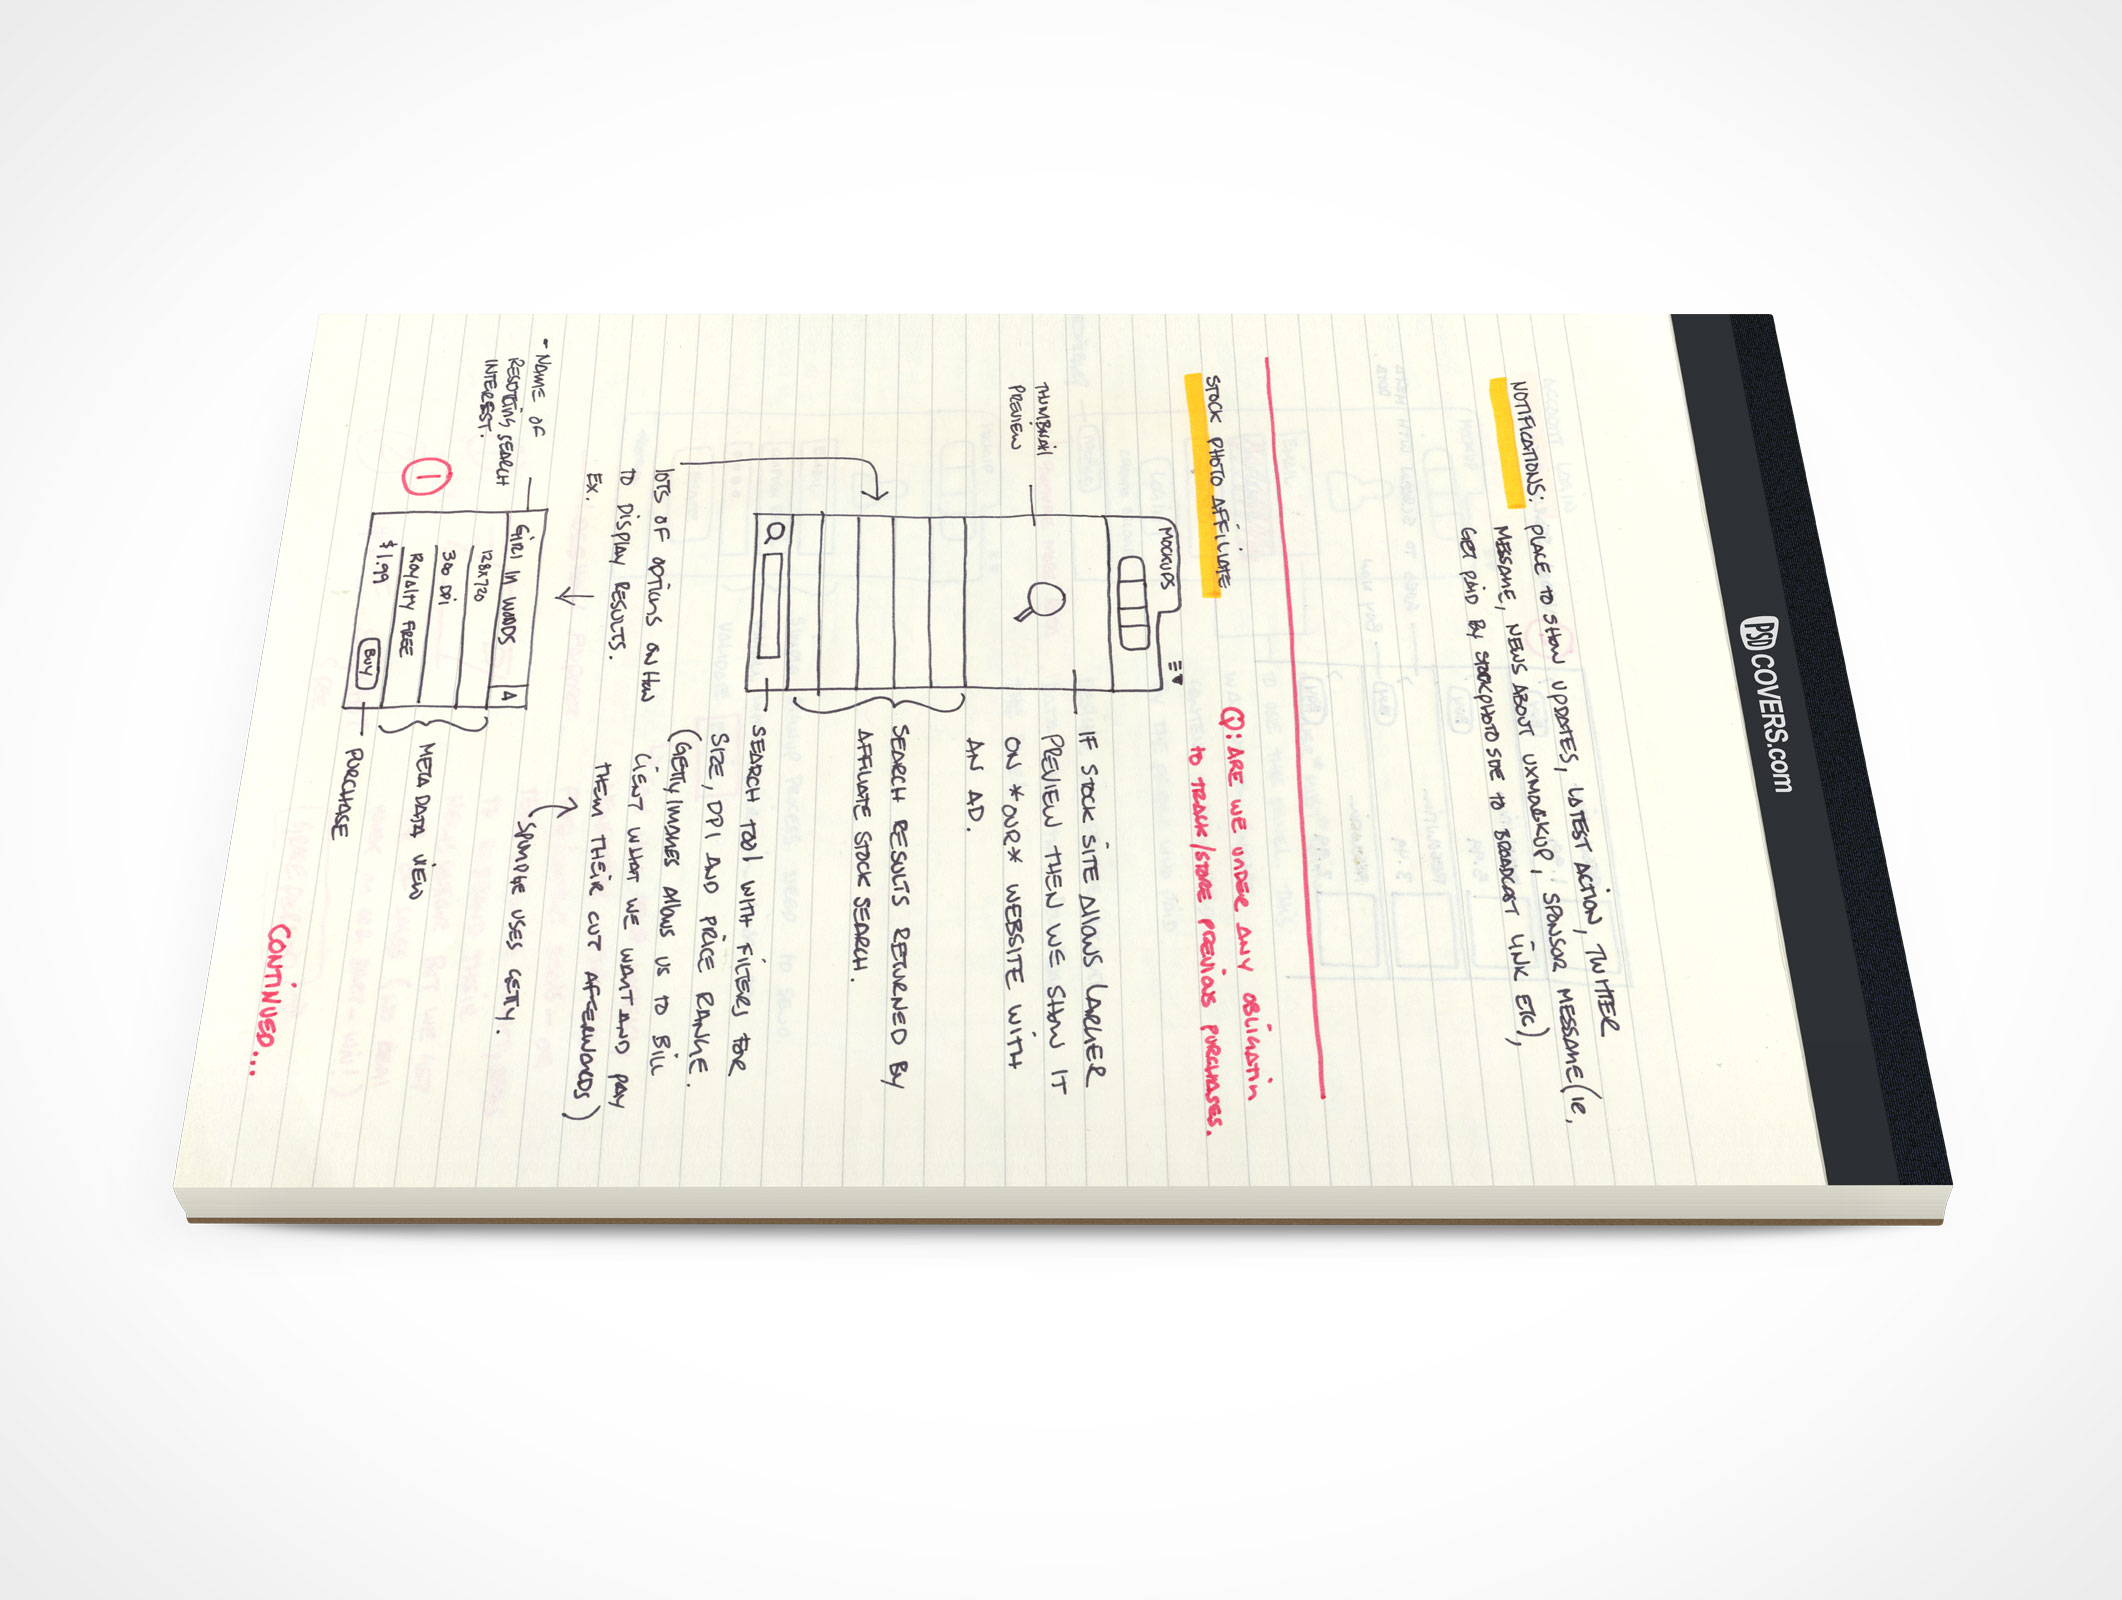 PSDCOVERS.com
NOTIFICATIONS: PLACE TO SHOW UPDATES, LATEST ACTION, TWITTER
MESSAGE, NEWS ABOUT UXMOCKUP, SPONSOR MESSAGE (ie,
GET PAID BY STOCKPHOTO SITE TO BROADCAST LINK ETC),
STOCK PHOTO AFFILIATE
Q: ARE WE UNDER ANY OBLIGATIN
TO TRACK/STORE PREVIOUS PURCHASES.
MOCKUPS
THUMBNAIL
PREVIEW
IF STOCK SITE ALLOWS LARGER
PREVIEW THEN WE SHOW IT
ON *OUR* WEBSITE WITH
AN AD.
SEARCH RESULTS RETURNED BY
AFFILIATE STOCK SEARCH.
SEARCH TOOL WITH FILTERS FOR
SIZE, DPI AND PRICE RANGE.
(GETTY IMAGES ALLOWS US TO BILL
CLIENT WHAT WE WANT AND PAY
THEM THEIR CUT AFERWARDS)
SPUNPHE USES GETTY.
LOTS OF OPTIONS ON HOW
TO DISPLAY RESULTS.
EX.
- NAME OF
SEARCH
INTEREST.
1
GIRL IN WOODS
A
128x720
300 DPI
ROYALTY FREE
$1.99
BUY
META DATA VIEW
PURCHASE
CONTINUED...